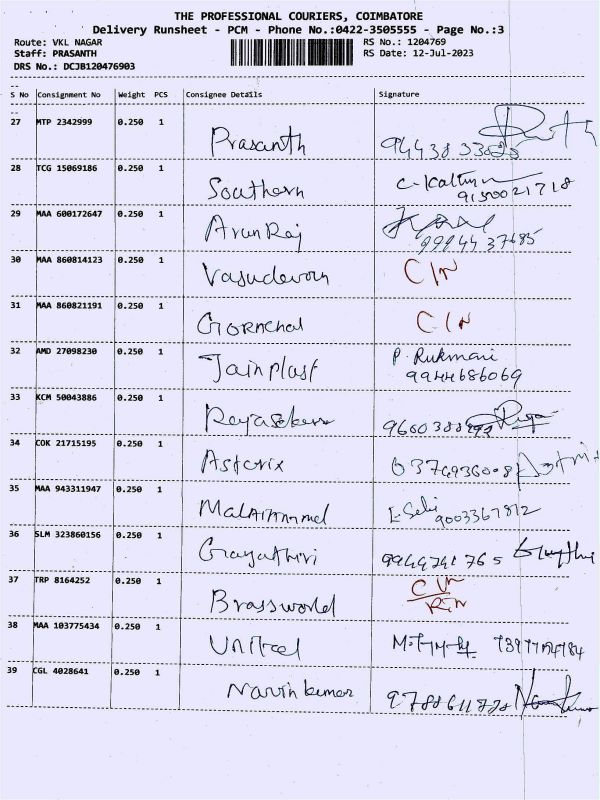 THE PROFESSIONAL COURIERS, COIMBATORE
Delivery Runsheet - PCM - Phone No.:0422-3505555 - Page No.:3
Route: VKL NAGAR
RS No.: 1204769
Staff: PRASANTH
RS Date: 12-Jul-2023
DRS No.: DCJB120476903
S No Consignment No Weight PCS Consignee Details Signature
27 MTP 2342999 0.250 1 Prasanth
28 TCG 15069186 0.250 1 Southern
9150021718
29 MAA 600172647 0.250 1 Arun Raj
30 MAA 860814123 0.250 1 Vasudevan C/N
31 MAA 860821191 0.250 1 C/N
32 AMD 27098230 0.250 1 Jainplast P. Rukmani
9944686069
33 KCM 50043886 0.250 1
34 COK 21715195 0.250 1 Asterix
35 MAA 943311947 0.250 1
9003367812
36 SLM 323860156 0.250 1 Gayathiri
37 TRP 8164252 0.250 1 Brassworld
38 MAA 103775434 0.250 1
39 CGL 4028641 0.250 1 Navin kumar